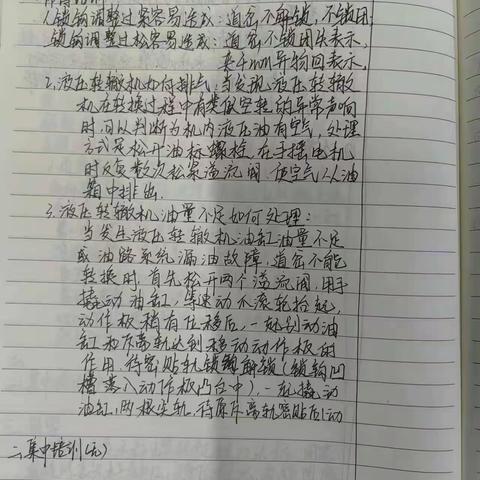 1.锁钩调整过紧容易造成:道岔不解锁,不锁闭
锁钩调整过松容易造成:道岔不锁闭失表示,
夹4mm异物回表示.
2.液压转辙机如何排气:当发现液压转辙
机在转换过程中有类似空转的异常声响
时,可以判断为机内液压油有空气,处理
方式是松开油标螺栓,在手摇电机
时反复数次松紧溢流阀,使空气从油
箱中排出.
3.液压转辙机油量不足如何处理:
当发生液压转辙机油缸油量不足
或油路系统漏油故障,道岔不能
转换时,首先松开两个溢流阀,用手
撬动油缸,等速动片滚轮抬起,
动作板稍有位移后,一起别动油
缸和斥离轨达到移动动作板的
作用,待密贴轨锁钩解锁(锁钩凹
槽落入动作板凸台中),一起撬动
油缸,两根尖轨,待原斥离轨密贴后,动
二.集中培训(无)